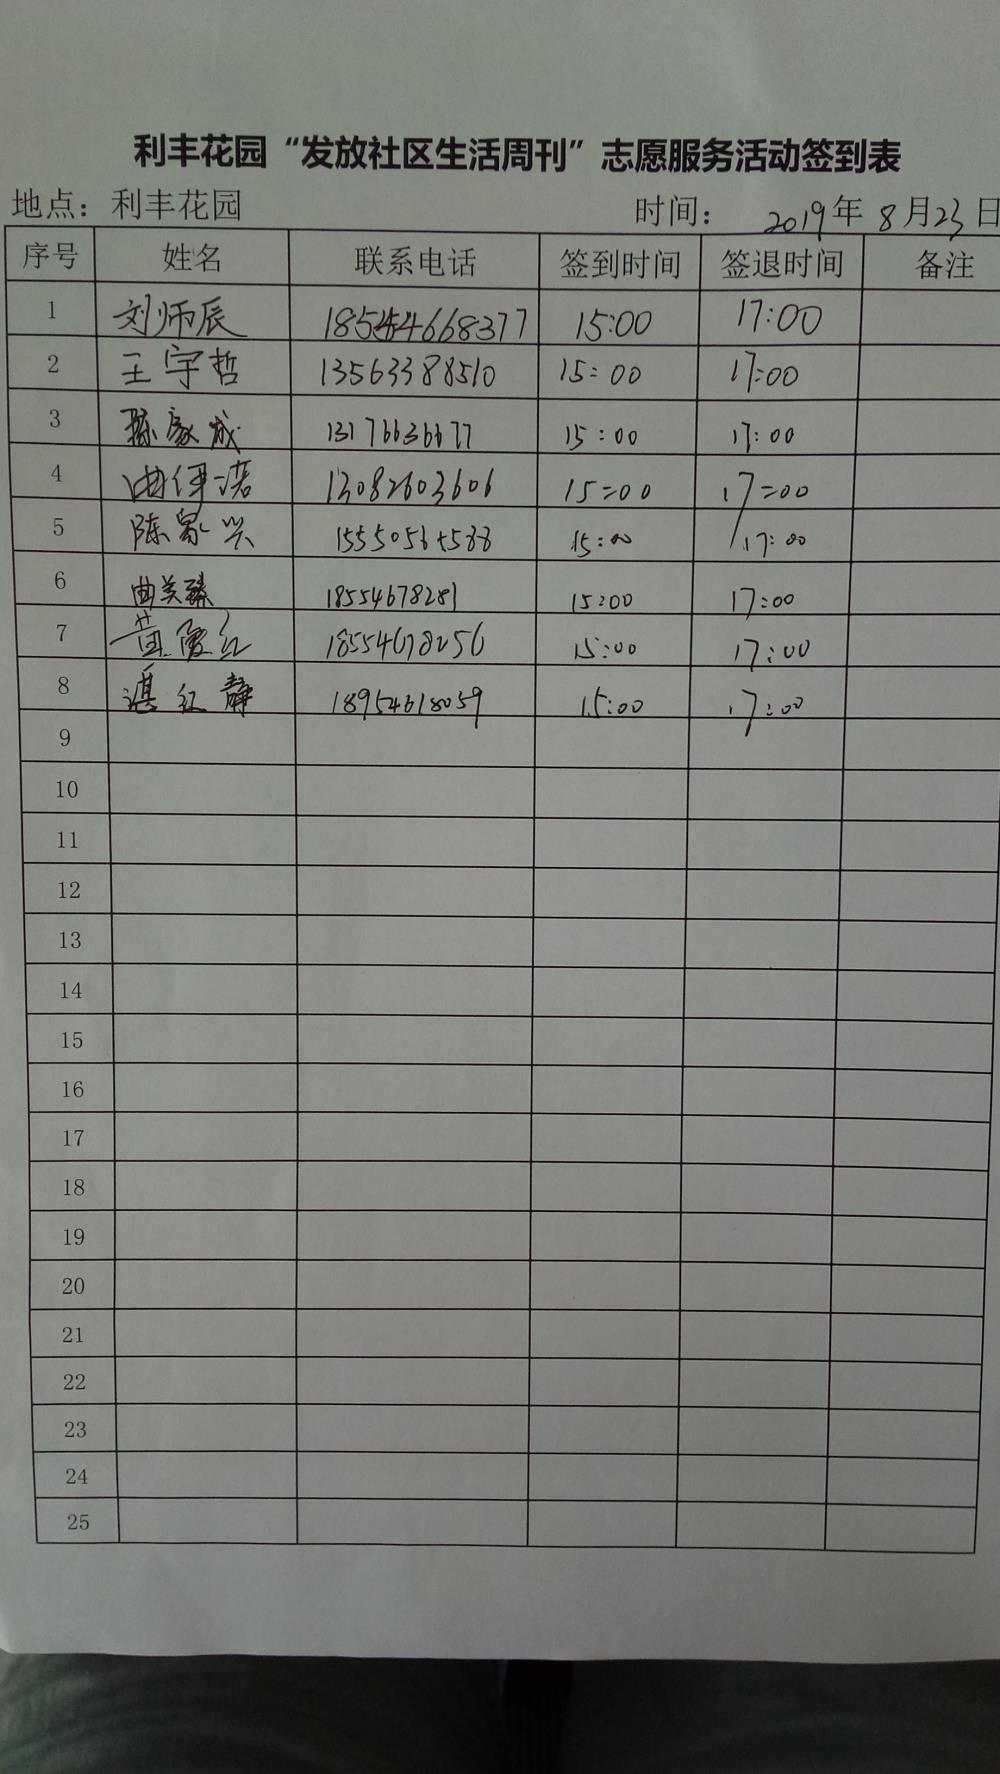 利丰花园“发放社区生活周刊”志愿服务活动签到表
地点：利丰花园 时间： 2019年 8月23日
序号 姓名 联系电话 签到时间 签退时间 备注
1 刘师辰 15:00 17:00
2 王宇哲 13563388510 15:00 17:00
3 13176636677 15:00 17:00
4 13082603606 15:00 17:00
5 陈家兴 15:00 17:00
6 曲美臻 18554678281 15:00 17:00
7 18554678256 15:00 17:00
8 湛红静 18954618059 15:00 17:00
9
10
11
12
13
14
15
16
17
18
19
20
21
22
23
24
25